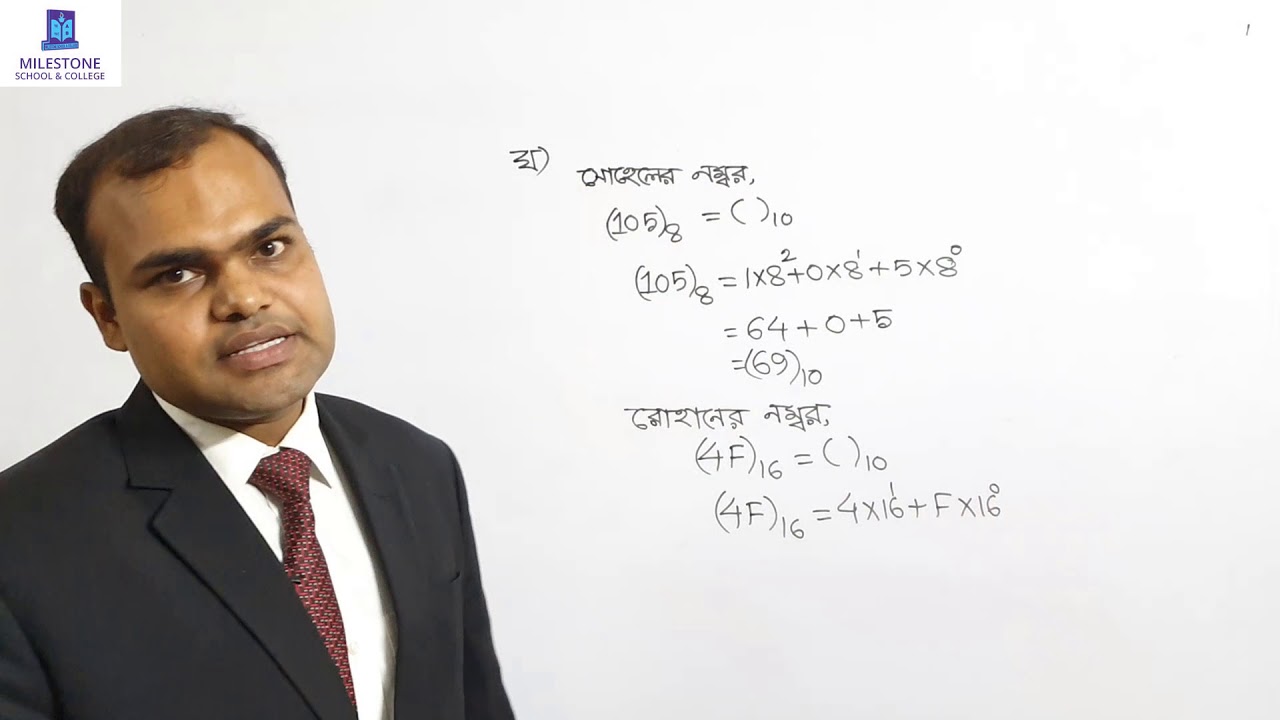 MILESTONE
SCHOOL & COLLEGE
ঘ) সোহেলের নম্বর,
(105)₈ = ( )₁₀
(105)₈ = 1×8²+0×8¹+5×8⁰
= 64+0+5
=(69)₁₀
রোহানের নম্বর,
(4F)₁₆ = ( )₁₀
(4F)₁₆ = 4×16¹+F×16⁰